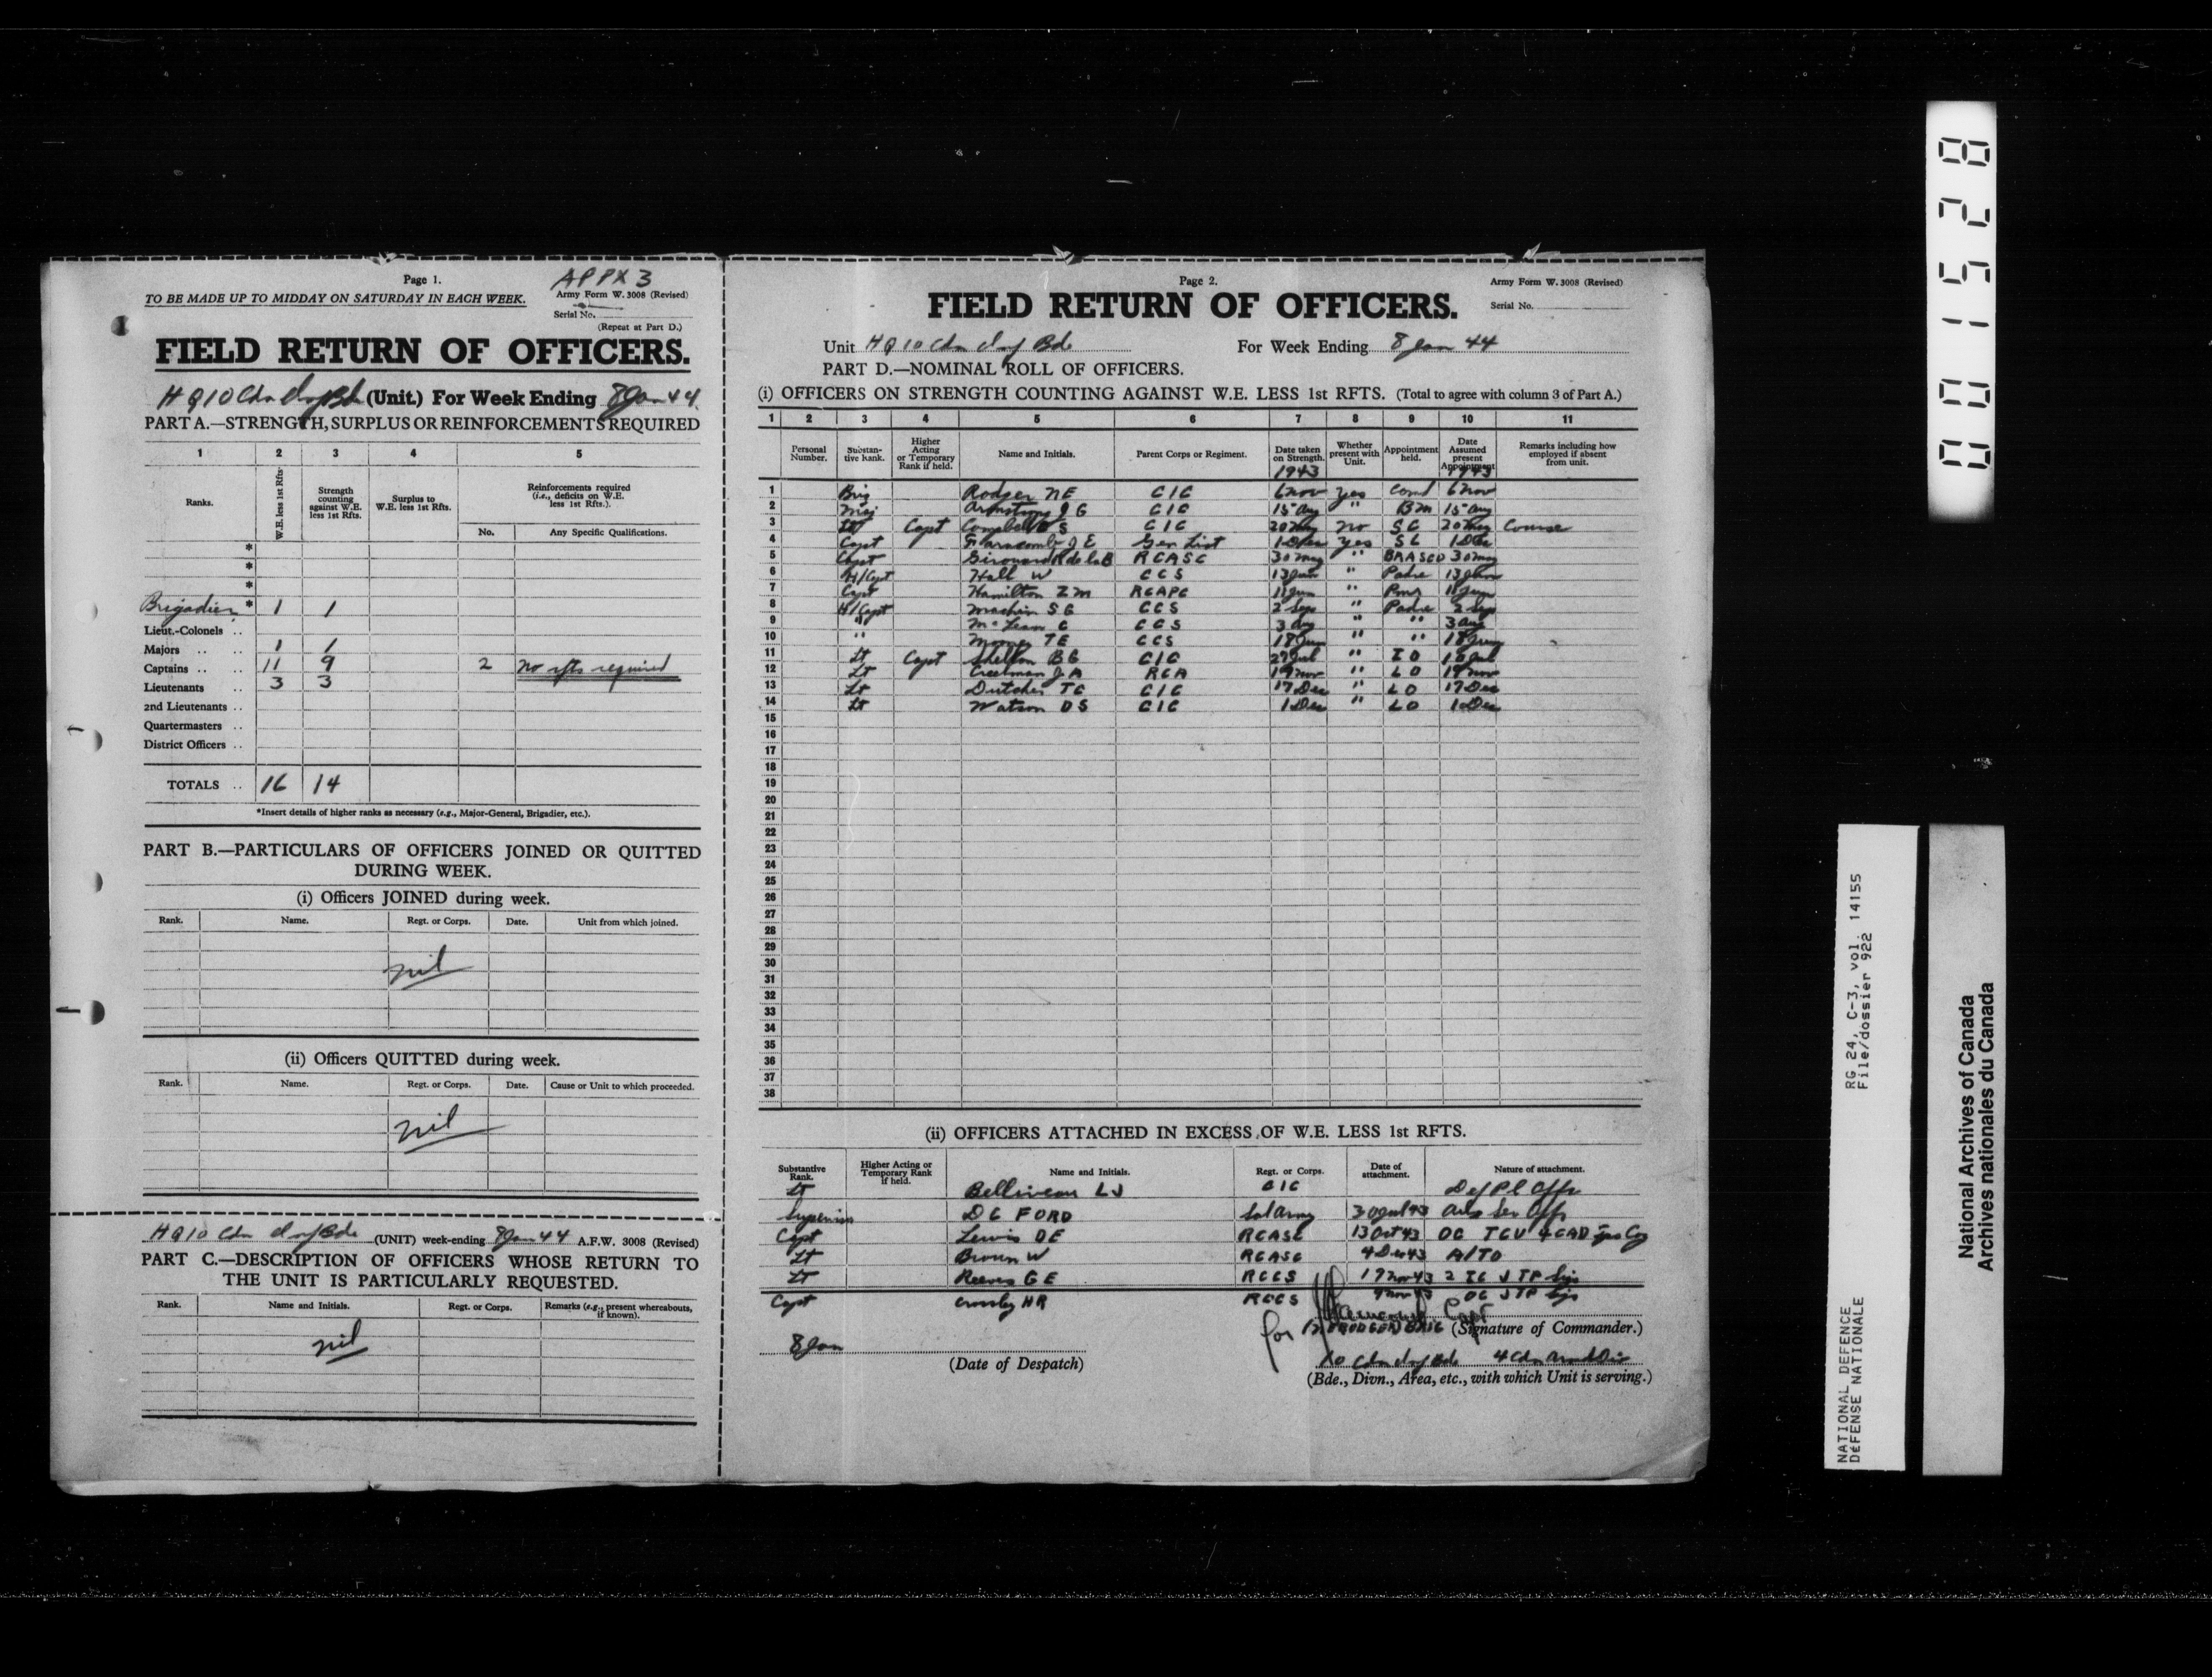 Page 1.
APPX 3
TO BE MADE UP TO MIDDAY ON SATURDAY IN EACH WEEK.
Army Form W. 3008 (Revised)
Serial No.
(Repeat at Part D.)
FIELD RETURN OF OFFICERS.
HQ 10 Cdn Inf Bde (Unit.) For Week Ending 8 Jan 44
PART A.—STRENGTH, SURPLUS OR REINFORCEMENTS REQUIRED
1 2 3 4 5
Ranks. W.E. less 1st Rfts. Strength counting against W.E. less 1st Rfts. Surplus to W.E. less 1st Rfts. Reinforcements required (i.e., deficits on W.E. less 1st Rfts.).
No. Any Specific Qualifications.
*
*
*
Brigadier * 1 1
Lieut.-Colonels ..
Majors .. .. 1 1
Captains .. .. 11 9 2 No rfts required
Lieutenants .. 3 3
2nd Lieutenants ..
Quartermasters ..
District Officers ..
TOTALS .. 16 14
*Insert details of higher ranks as necessary (e.g., Major-General, Brigadier, etc.).
PART B.—PARTICULARS OF OFFICERS JOINED OR QUITTED
DURING WEEK.
(i) Officers JOINED during week.
Rank. Name. Regt. or Corps. Date. Unit from which joined.
nil
(ii) Officers QUITTED during week.
Rank. Name. Regt. or Corps. Date. Cause or Unit to which proceeded.
nil
HQ 10 Cdn Inf Bde (UNIT) week-ending 8 Jan 44 A.F.W. 3008 (Revised)
PART C.—DESCRIPTION OF OFFICERS WHOSE RETURN TO
THE UNIT IS PARTICULARLY REQUESTED.
Rank. Name and Initials. Regt. or Corps. Remarks (e.g., present whereabouts, if known).
nil
Page 2.
Army Form W. 3008 (Revised)
FIELD RETURN OF OFFICERS.
Serial No.
Unit HQ 10 Cdn Inf Bde For Week Ending 8 Jan 44
PART D.—NOMINAL ROLL OF OFFICERS.
(i) OFFICERS ON STRENGTH COUNTING AGAINST W.E. LESS 1st RFTS. (Total to agree with column 3 of Part A.)
1 2 3 4 5 6 7 8 9 10 11
Personal Number. Substantive Rank. Higher Acting or Temporary Rank if held. Name and Initials. Parent Corps or Regiment. Date taken on Strength. Whether present with Unit. Appointment held. Date Assumed present Appointment Remarks including how employed if absent from unit.
1943 1943
1 Brig Rodger NE CIC 6 Nov yes Comd 6 Nov
2 Maj Armstrong JG CIC 15 Aug " BM 15 Aug
3 Lt Capt Campbell S CIC 20 no SC 20 Course
4 Capt JE Gen List 1 Dec yes SC 1 Dec
5 Capt Girouard R de la B RCASC 30 May " BRASCO 30 May
6 H/Capt Hall W CCS 13 Jun " Padre 13 Jun
7 Capt Hamilton ZM RCAPC 11 Jun " Pmr 11 Jun
8 H/Capt Machin SG CCS 2 Sep " Padre 2 Sep
9 " McLean C CCS 3 Aug " " 3 Aug
10 " Mooney TE CCS 18 Jun " " 18
11 Lt Capt Shelton BG CIC 27 Jul " IO Jul
12 Lt Creelman JA RCA 19 Nov " LO 19 Nov
13 Lt Dutcher TC CIC 17 Dec " LO 17 Dec
14 Lt Watson DS CIC 1 Dec " LO 1 Dec
15
16
17
18
19
20
21
22
23
24
25
26
27
28
29
30
31
32
33
34
35
36
37
38
(ii) OFFICERS ATTACHED IN EXCESS OF W.E. LESS 1st RFTS.
Substantive Rank. Higher Acting or Temporary Rank if held. Name and Initials. Regt. or Corps. Date of attachment. Nature of attachment.
Lt Belliveau LJ CIC Def Pl Offr
Supervisor DC FORD Sal Army 30 Jul 43 Aux Ser Offr
Capt Lewis DE RCASC 13 Oct 43 OC TCV 4 CAD Tps Coy
Lt Brown W RCASC 4 Dec 43 A/TO
Lt Reeves GE RCCS 17 Nov 43 2 IC J TP Sigs
Capt Crosby HR RCCS 9 Nov 43 OC J TP Sigs
for Capt
RODGER BRIG (Signature of Commander.)
8 Jan
(Date of Despatch)
10 Cdn Inf Bde 4 Cdn Armd Div
(Bde., Divn., Area, etc., with which Unit is serving.)
001528
RG 24, C-3, vol. 14155
File/dossier 922
NATIONAL DEFENCE
DéFENSE NATIONALE
National Archives of Canada
Archives nationales du Canada